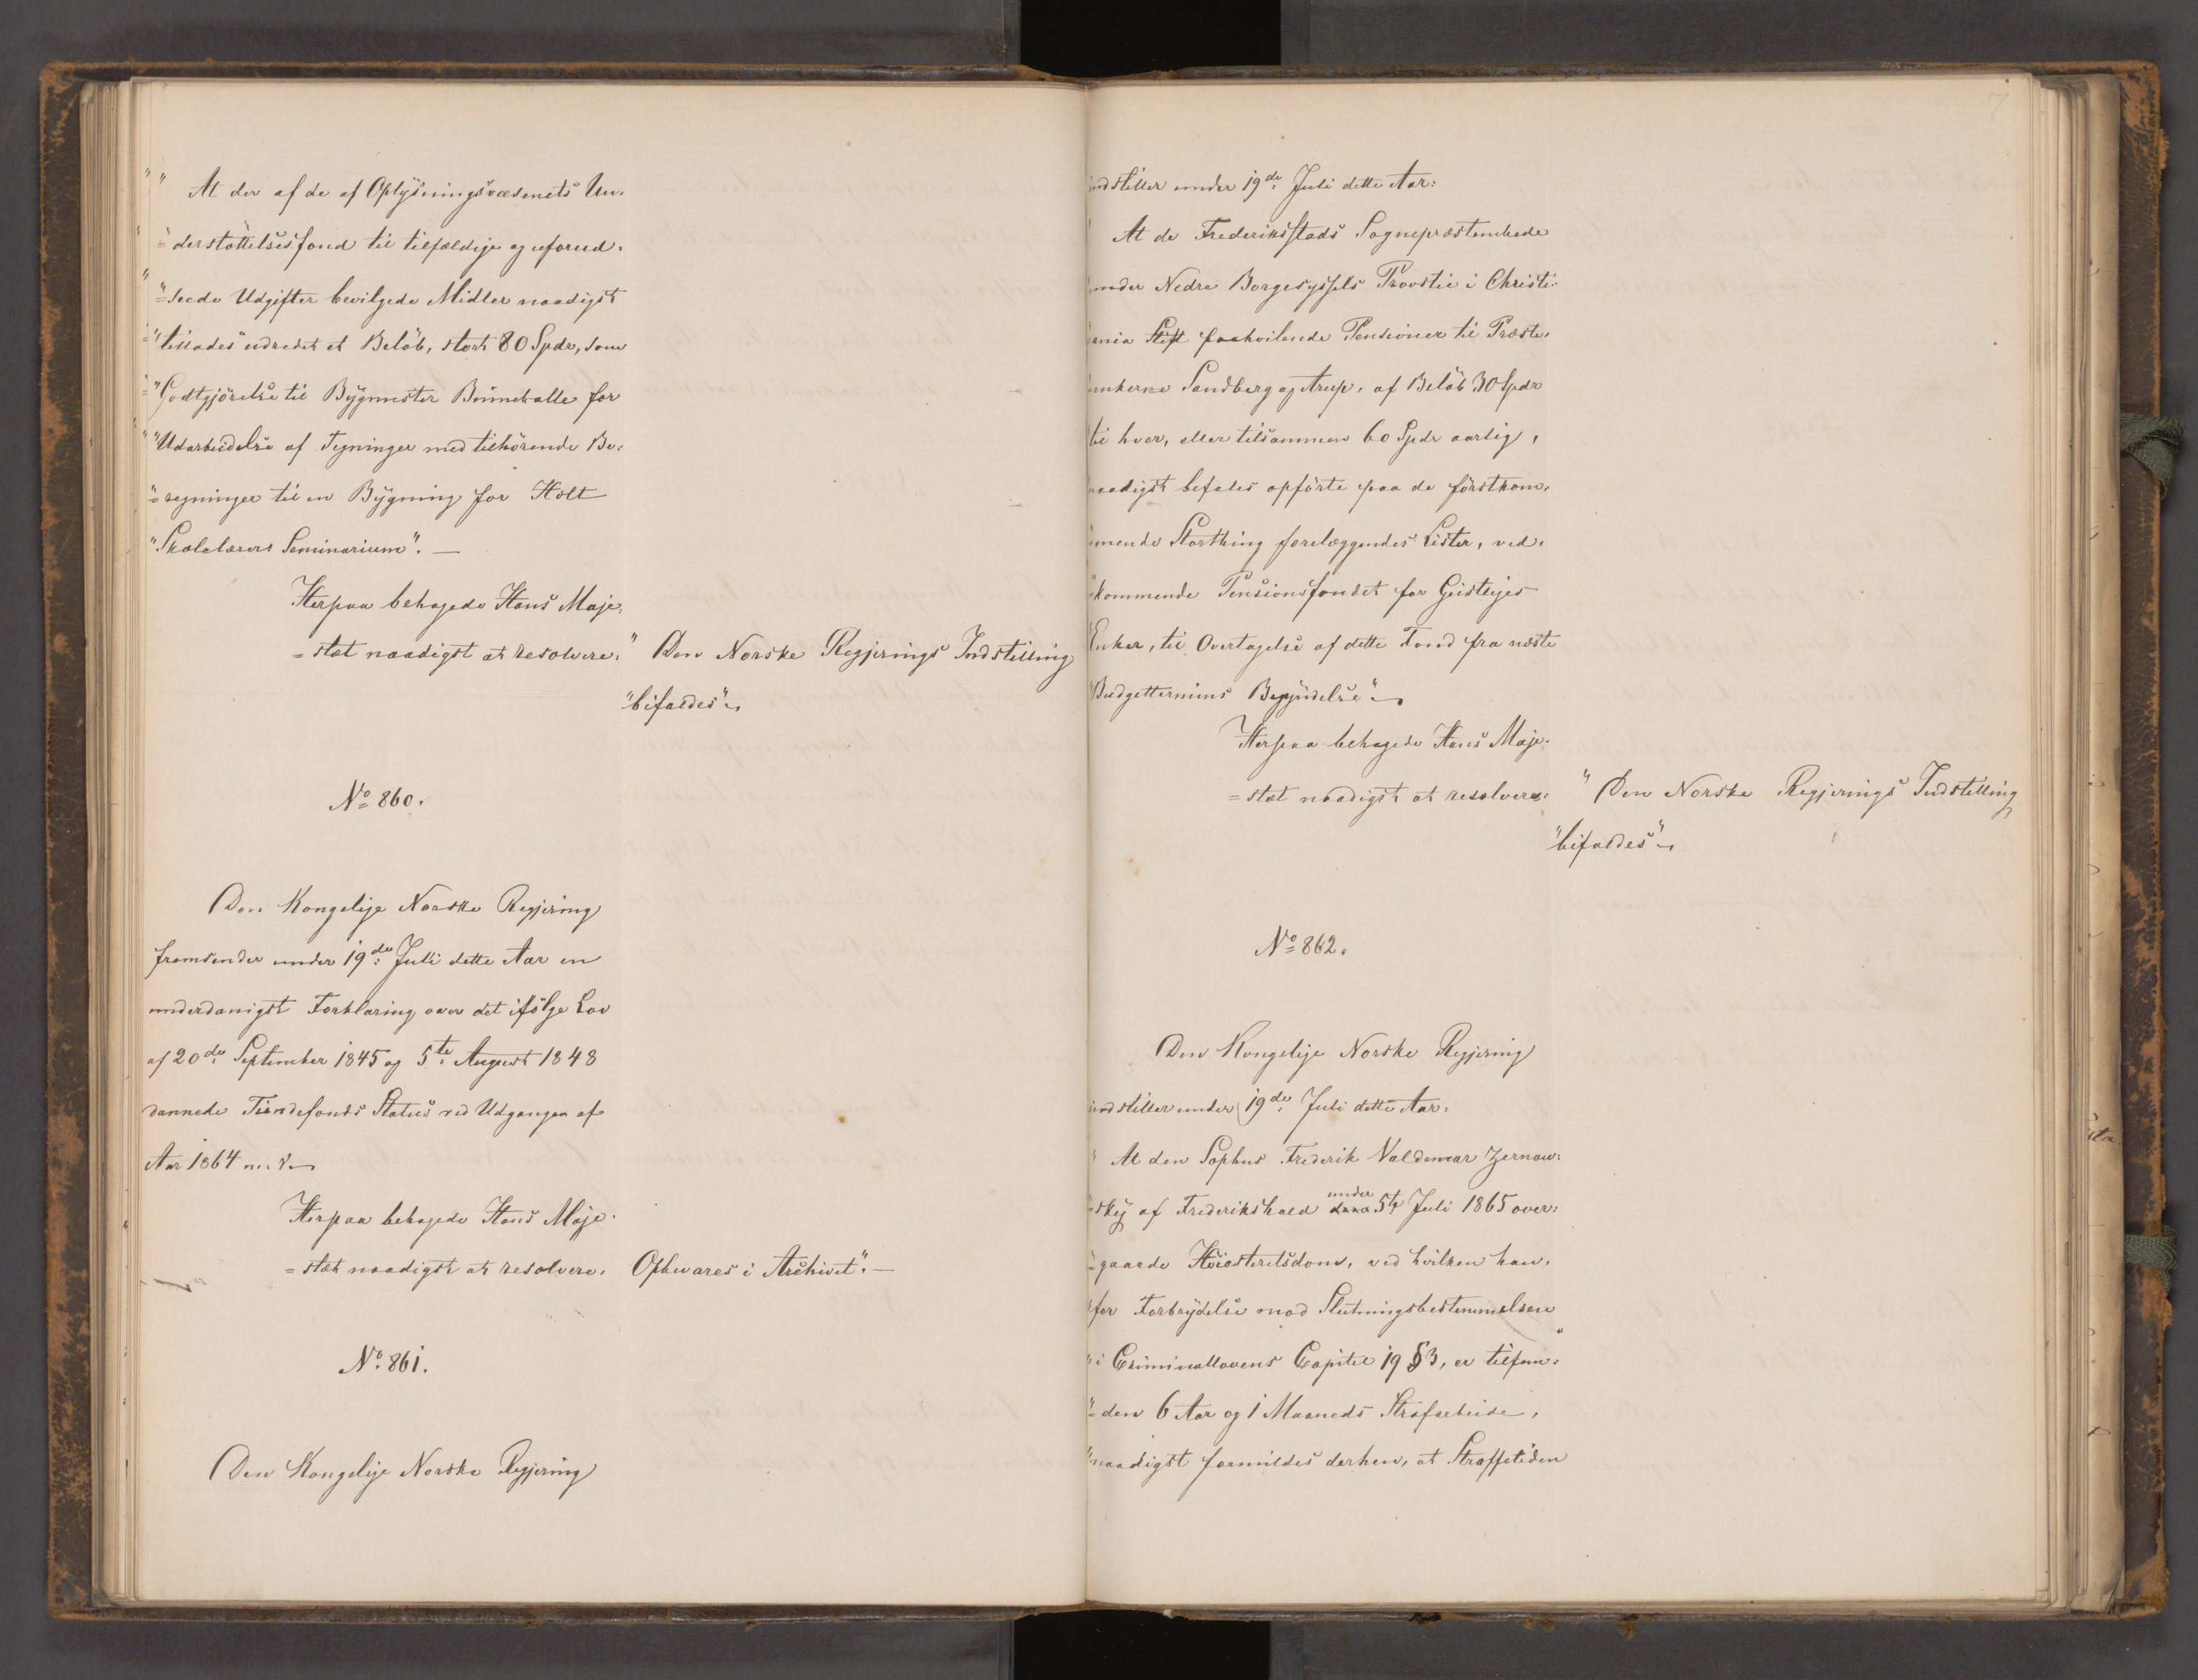 " At der af de af Oplysningsvæsenets Un-
"=derstøttelsesfond til tilfældige og uforud-
"=seede Udgifter bevilgede Midler naadigst
"tillades udredet et Beløb, stort 80 Spdr, som
"Godtgjörelse til Bygmester Brinchalle for
"Udarbeidelse af Tegninger med tilhörende Be-
"=regninger til en Bygning for Holt
"Skolelærers Seminarium". —
Herpaa behagede Hans Maje-
=stæt naadigst at resolvere: " Den Norske Regjerings Indstilling
"bifaldes".
No 860.
Den Kongelige Norske Regjering
fremsender under 19de Juli dette Aar en
underdanigst Forklaring over det ifölge Lov
af 20de September 1845 og 5te August 1848
dannede Tiendefonds Status ved Udgangen af
Aar 1864 m. V.
Herpaa behagede Hans Maje-
=stæt naadigst at resolvere. Opbevares i Archivet". —
No. 861.
Den Kongelige Norske Regjering
7
indstiller under 19de Juli dette Aar:
" At de Frederiksstads Sognepræstembede
under Nedre Borgesyssels Provstie i Christi-
ania Stift paahvilende Pensioner til Præste-
enkerne Sandberg og Arup, af Beløb 30 Spdr
til hver, eller tilsammen 60 Spdr aarlig,
naadigst befales opförte paa de förstkom-
mende Storthing forelæggendes Lister, ved-
"kommende Pensionsfondet for Geistliges
"Enker, til Overtagelse af dette Fond fra næste
"Budgettermins Begyndelse".
Herpaa behagede Hans Maje-
=stæt naadigst at resolvere: " Den Norske Regjerings Indstilling
"bifaldes".
No 862.
Den Kongelige Norske Regjering
indstiller under 19de Juli dette Aar:
" At den Sophus Frederik Valdemar Zernow-
"=skij af Frederikshald under 5te Juli 1865 over-
"=gaaede Höiesteretsdom, ved hvilken han,
"for Forbrydelse mod Slutningsbestemmelsen
"i Criminallovens Capitel 19 § 3, er tilfun-
"=den 6 Aar og 1 Maaneds Strafarbeide,
"naadigst formildes derhen, at Straffetiden